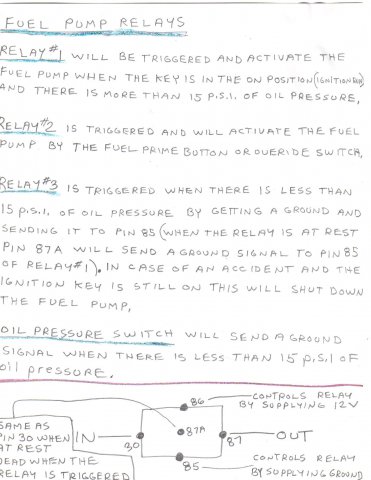 FUEL PUMP RELAYS
RELAY #1 WILL BE TRIGGERED AND ACTIVATE THE
FUEL PUMP WHEN THE KEY IS IN THE ON POSITION (IGNITION RUN)
AND THERE IS MORE THAN 15 P.S.I. OF OIL PRESSURE,
RELAY #2 IS TRIGGERED AND WILL ACTIVATE THE FUEL
PUMP BY THE FUEL PRIME BUTTON OR OVERIDE SWITCH,
RELAY #3 IS TRIGGERED WHEN THERE IS LESS THAN
15 P.S.I. OF OIL PRESSURE BY GETTING A GROUND AND
SENDING IT TO PIN 85 (WHEN THE RELAY IS AT REST
PIN 87A WILL SEND A GROUND SIGNAL TO PIN 85
OF RELAY #1). IN CASE OF AN ACCIDENT AND THE
IGNITION KEY IS STILL ON THIS WILL SHUT DOWN
THE FUEL PUMP,
OIL PRESSURE SWITCH WILL SEND A GROUND
SIGNAL WHEN THERE IS LESS THAN 15 P.S.I OF
oil pressure.
86
CONTROLS RELAY
BY SUPPLYING 12V
SAME AS
PIN 30 WHEN
AT REST
DEAD WHEN THE
RELAY IS TRIGGERED
IN
30
87A
87
OUT
85
CONTROLS RELAY
BY SUPPLYING GROUND